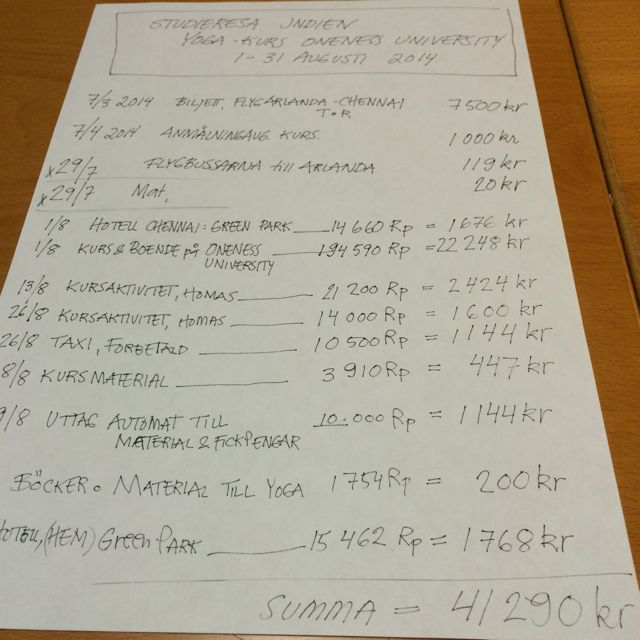 STUDIERESA INDIEN
YOGA-KURS ONENESS UNIVERSITY
1-31 AUGUSTI 2014
7/3 2014 BILJETT, FLYG ARLANDA-CHENNAI 7500 kr
T.R
7/4 2014 ANMÄLNINGAVG. KURS. 1000 kr
x29/7 FLYGBUSSARNA till ARLANDA 119 kr
x29/7 Mat, 20 kr
1/8 HOTELL CHENNAI: GREEN PARK 14 660 Rp = 1676 kr
1/8 KURS & BOENDE på ONENESS 194 590 Rp = 22 248 kr
UNIVERSITY
13/8 KURSAKTIVITET, HOMAS 21 200 Rp = 2424 kr
26/8 KURSAKTIVITET, HOMAS 14 000 Rp = 1600 kr
26/8 TAXI, FÖRBETALD 10 500 Rp = 1144 kr
8/8 KURSMATERIAL 3 910 Rp = 447 kr
9/8 UTTAG AUTOMAT TILL 10.000 Rp = 1144 kr
MATERIAL & FICKPENGAR
BÖCKER o MATERIAL TILL YOGA 1754 Rp = 200 kr
HOTELL, (HEM) Green PARK 15 462 Rp = 1768 kr
SUMMA = 41290 kr